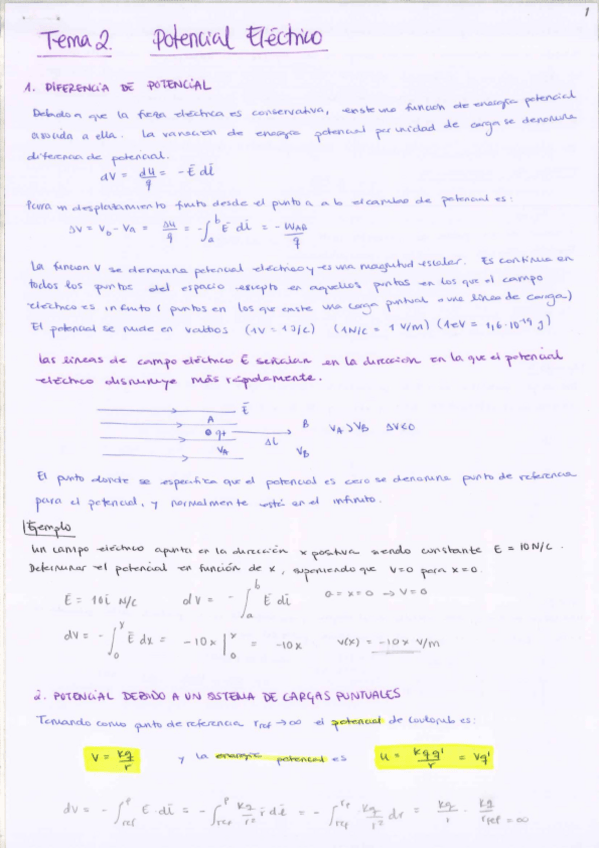 1
Tema 2. Potencial Eléctrico
1. DIFERENCIA DE POTENCIAL
Debido a que la fuerza eléctrica es conservativa, existe una funcion de energía potencial
asociada a ella. La variacion de energía potencial por unidad de carga se denomina
diferencia de potencial.
dV = dU/q = -Ē dl̄
Para un desplazamiento finito desde el punto a a b el cambio de potencial es:
ΔV = V_b - V_A = ΔU/q = -∫_a^b Ē dl̄ = -W_AB/q
La funcion V se denomina potencial eléctrico y es una magnitud escalar. Es continua en
todos los puntos del espacio excepto en aquellos puntos en los que el campo
eléctrico es infinito (puntos en los que existe una carga puntual o una línea de carga)
El potencial se mide en voltios (1V = 1J/C) (1N/C = 1 V/m) (1eV = 1,6·10⁻¹⁹ J)
Las líneas de campo eléctrico E señalan en la dirección en la que el potencial
eléctrico disminuye más rápidamente.
Ē
A
q+
B
V_A > V_B ΔV<0
ΔL
V_A
V_B
El punto donde se especifica que el potencial es cero se denomina punto de referencia
para el potencial, y normalmente está en el infinito.
Ejemplo
Un campo eléctrico apunta en la dirección x positiva siendo constante E = 10 N/C.
Determinar el potencial en función de x, suponiendo que V=0 para x=0.
Ē = 10i N/C dV = -∫_a^b Ē dl̄ a = x = 0 → V=0
dV = -∫_0^x Ē dx = -10x |_0^x = -10x V(x) = -10x V/m
2. POTENCIAL DEBIDO A UN SISTEMA DE CARGAS PUNTUALES
Tomando como punto de referencia r_ref → ∞ el potencial de Coulomb es:
V = kq/r y la energía potencial es U = kqq'/r = Vq'
dV = -∫_ref^P Ē·dl̄ = -∫_ref^P kq/r² r̄ dl̄ = -∫_ref^rP kq/r² dr = kq/r - kq/r_ref = ∞